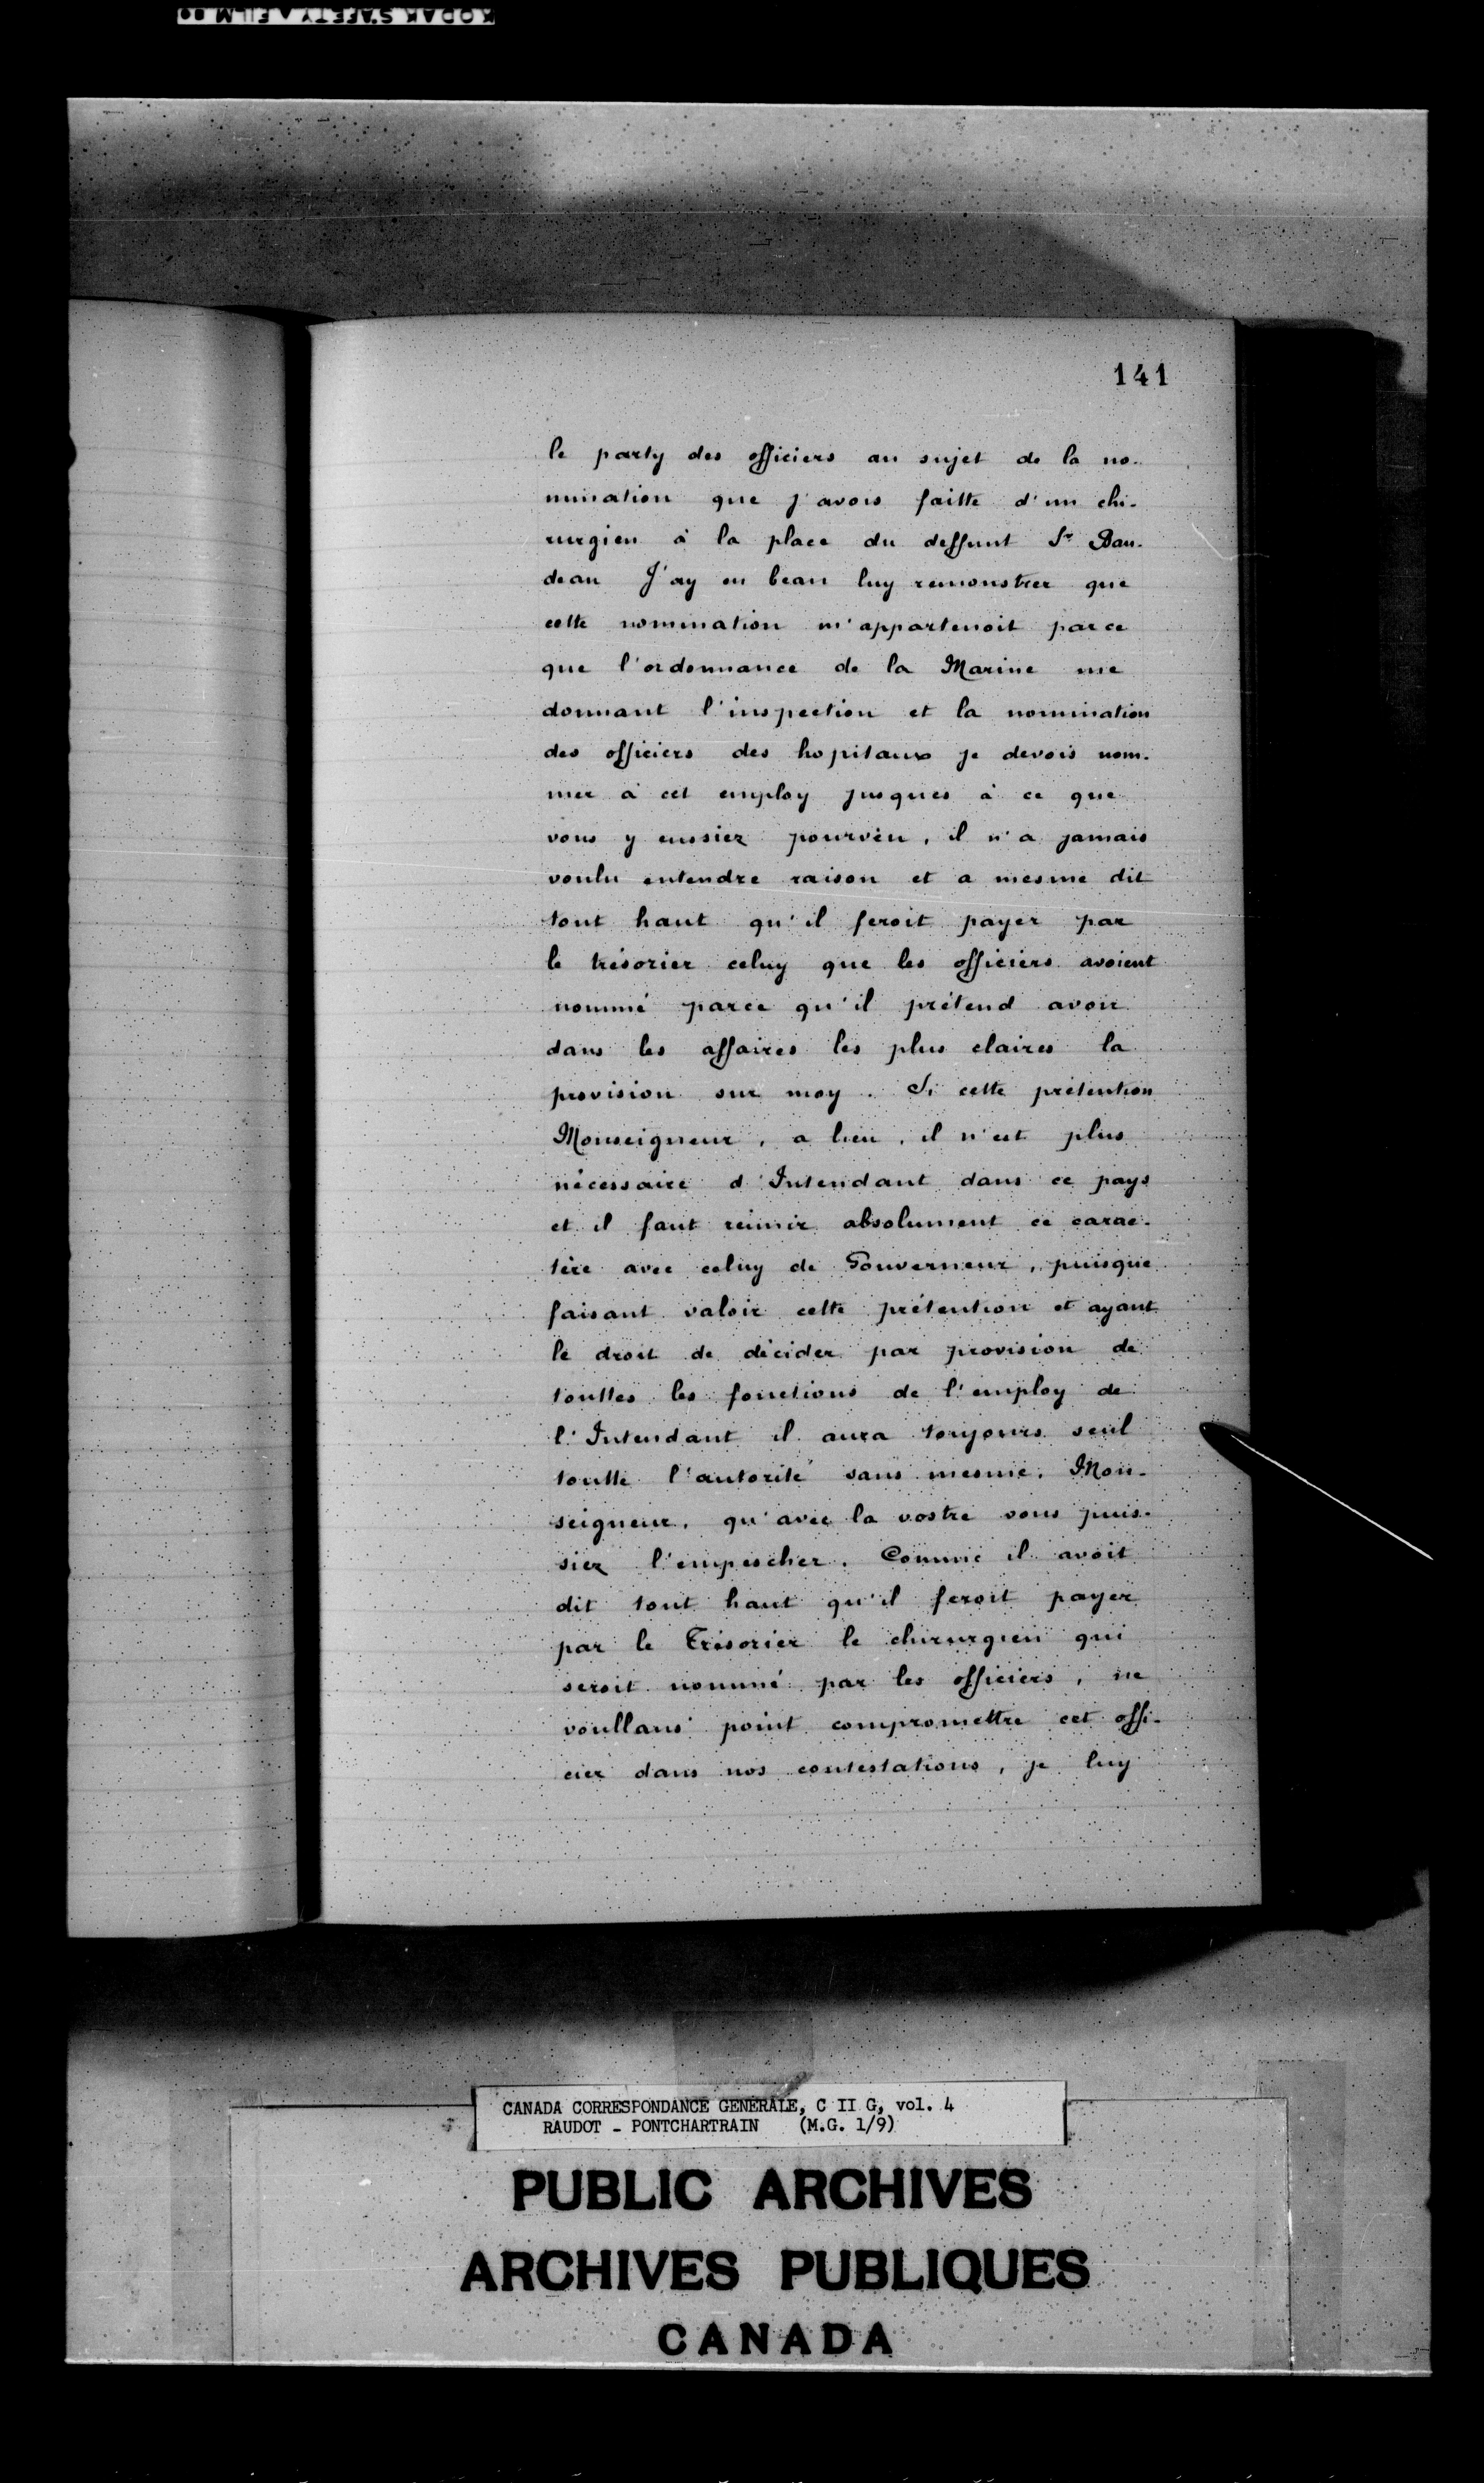 KODAK SAFETY FILM
141
le party des officiers au sujet de la no-
mination que j'avois faitte d'un chi-
rurgien à la place du deffunt Sr Bau-
deau J'ay eu beau luy remonstrer que
cette nomination m'appartenoit parce
que l'ordonnance de la Marine me
donnant l'inspection et la nomination
des officiers des hopitaux je devois nom-
mer à cet employ jusques à ce que
vous y eussiez pourvëu, il n'a jamais
voulu entendre raison et a mesme dit
tout haut qu'il feroit payer par
le trésorier celuy que les officiers avoient
nommé parce qu'il prétend avoir
dans les affaires les plus claires la
provision sur moy. Si cette prétention
Monseigneur, a lieu, il n'est plus
nécessaire d'Intendant dans ce pays
et il faut réunir absolument ce carac-
tère avec celuy de Gouverneur, puisque
faisant valoir cette prétention et ayant
le droit de décider par provision de
touttes les fonctions de l'employ de
l'Intendant il aura toujours seul
toutte l'autorité sans mesme, Mon-
seigneur, qu'avec la vostre vous puis-
siez l'empescher. Comme il avoit
dit tout haut qu'il feroit payer
par le Trésorier le chirurgien qui
seroit nommé par les officiers, ne
voullans point compromettre cet offi-
cier dans nos contestations, je luy
CANADA CORRESPONDANCE GENERALE, C II G, vol. 4
RAUDOT - PONTCHARTRAIN (M.G. 1/9)
PUBLIC ARCHIVES
ARCHIVES PUBLIQUES
CANADA